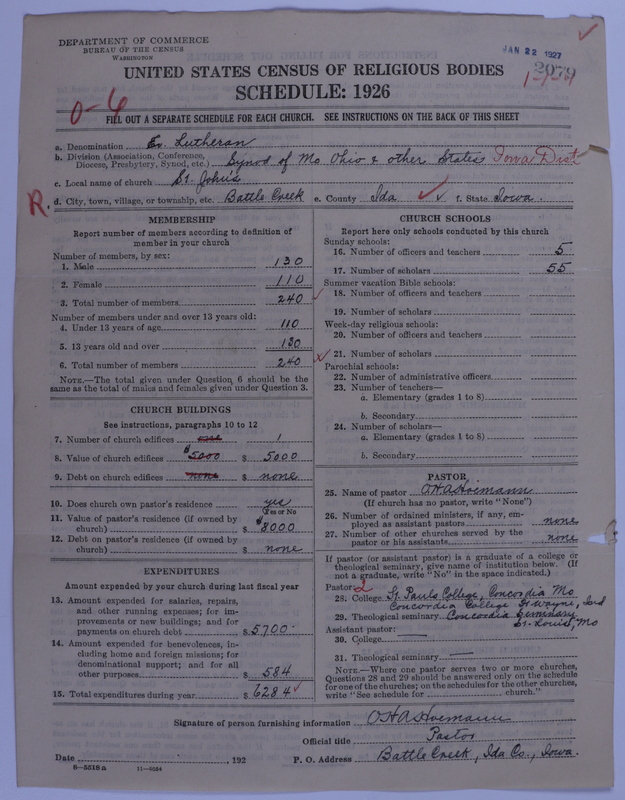 DEPARTMENT OF COMMERCE
BUREAU OF THE CENSUS
WASHINGTON
JAN 22 1927
2079
UNITED STATES CENSUS OF RELIGIOUS BODIES
SCHEDULE: 1926
0-6
FILL OUT A SEPARATE SCHEDULE FOR EACH CHURCH. SEE INSTRUCTIONS ON THE BACK OF THIS SHEET
a. Denomination Ev. Lutheran
b. Division (Association, Conference, Diocese, Presbytery, Synod, etc.) Synod of Mo Ohio & other States Iowa Dist
c. Local name of church St. John's
R. d. City, town, village, or township, etc. Battle Creek e. County Ida f. State Iowa.
MEMBERSHIP
Report number of members according to definition of
member in your church
Number of members, by sex:
1. Male 130
2. Female 110
3. Total number of members 240
Number of members under and over 13 years old:
4. Under 13 years of age 110
5. 13 years old and over 130
6. Total number of members 240
NOTE.—The total given under Question 6 should be the
same as the total of males and females given under Question 3.
CHURCH BUILDINGS
See instructions, paragraphs 10 to 12
7. Number of church edifices one 1
8. Value of church edifices $5000 $ 5000
9. Debt on church edifices none $ none
10. Does church own pastor's residence yes
(Yes or No)
11. Value of pastor's residence (if owned by
church) $ 8000
12. Debt on pastor's residence (if owned by
church) $ none
EXPENDITURES
Amount expended by your church during last fiscal year
13. Amount expended for salaries, repairs,
and other running expenses; for im-
provements or new building; and for
payments on church debt $ 5700
14. Amount expended for benevolences, in-
cluding home and foreign missions; for
denominational support; and for all
other purposes $ 584
15. Total expenditures during year $ 6284
CHURCH SCHOOLS
Report here only schools conducted by this church
Sunday schools:
16. Number of officers and teachers 5
17. Number of scholars 55
Summer vacation Bible schools:
18. Number of officers and teachers
19. Number of scholars
Week-day religious schools:
20. Number of officers and teachers
21. Number of scholars
Parochial schools:
22. Number of administrative officers
23. Number of teachers—
a. Elementary (grades 1 to 8)
b. Secondary
24. Number of scholars—
a. Elementary (grades 1 to 8)
b. Secondary
PASTOR
25. Name of pastor O H A Hoemann
(If church has no pastor, write "None")
26. Number of ordained ministers, if any, em-
ployed as assistant pastors none
27. Number of other churches served by the
pastor or his assistants none
If pastor (or assistant pastor) is a graduate of a college or
theological seminary, give name of institution below. (If
not a graduate, write "No" in the space indicated.)
Pastor: 2
28. College St. Pauls College, Concordia Mo
Concordia College Ft Wayne, Ind
29. Theological seminary Concordia Seminary
St. Louis, Mo
Assistant pastor:
30. College
31. Theological seminary
NOTE.—Where one pastor serves two or more churches,
Questions 28 and 29 should be answered only on the schedule
for one of the churches; on the schedules for the other churches,
write "See schedule for church."
Signature of person furnishing information O H A Hoemann
Official title Pastor
Date , 192 P. O. Address Battle Creek, Ida Co., Iowa.
8—5518a 11—9024